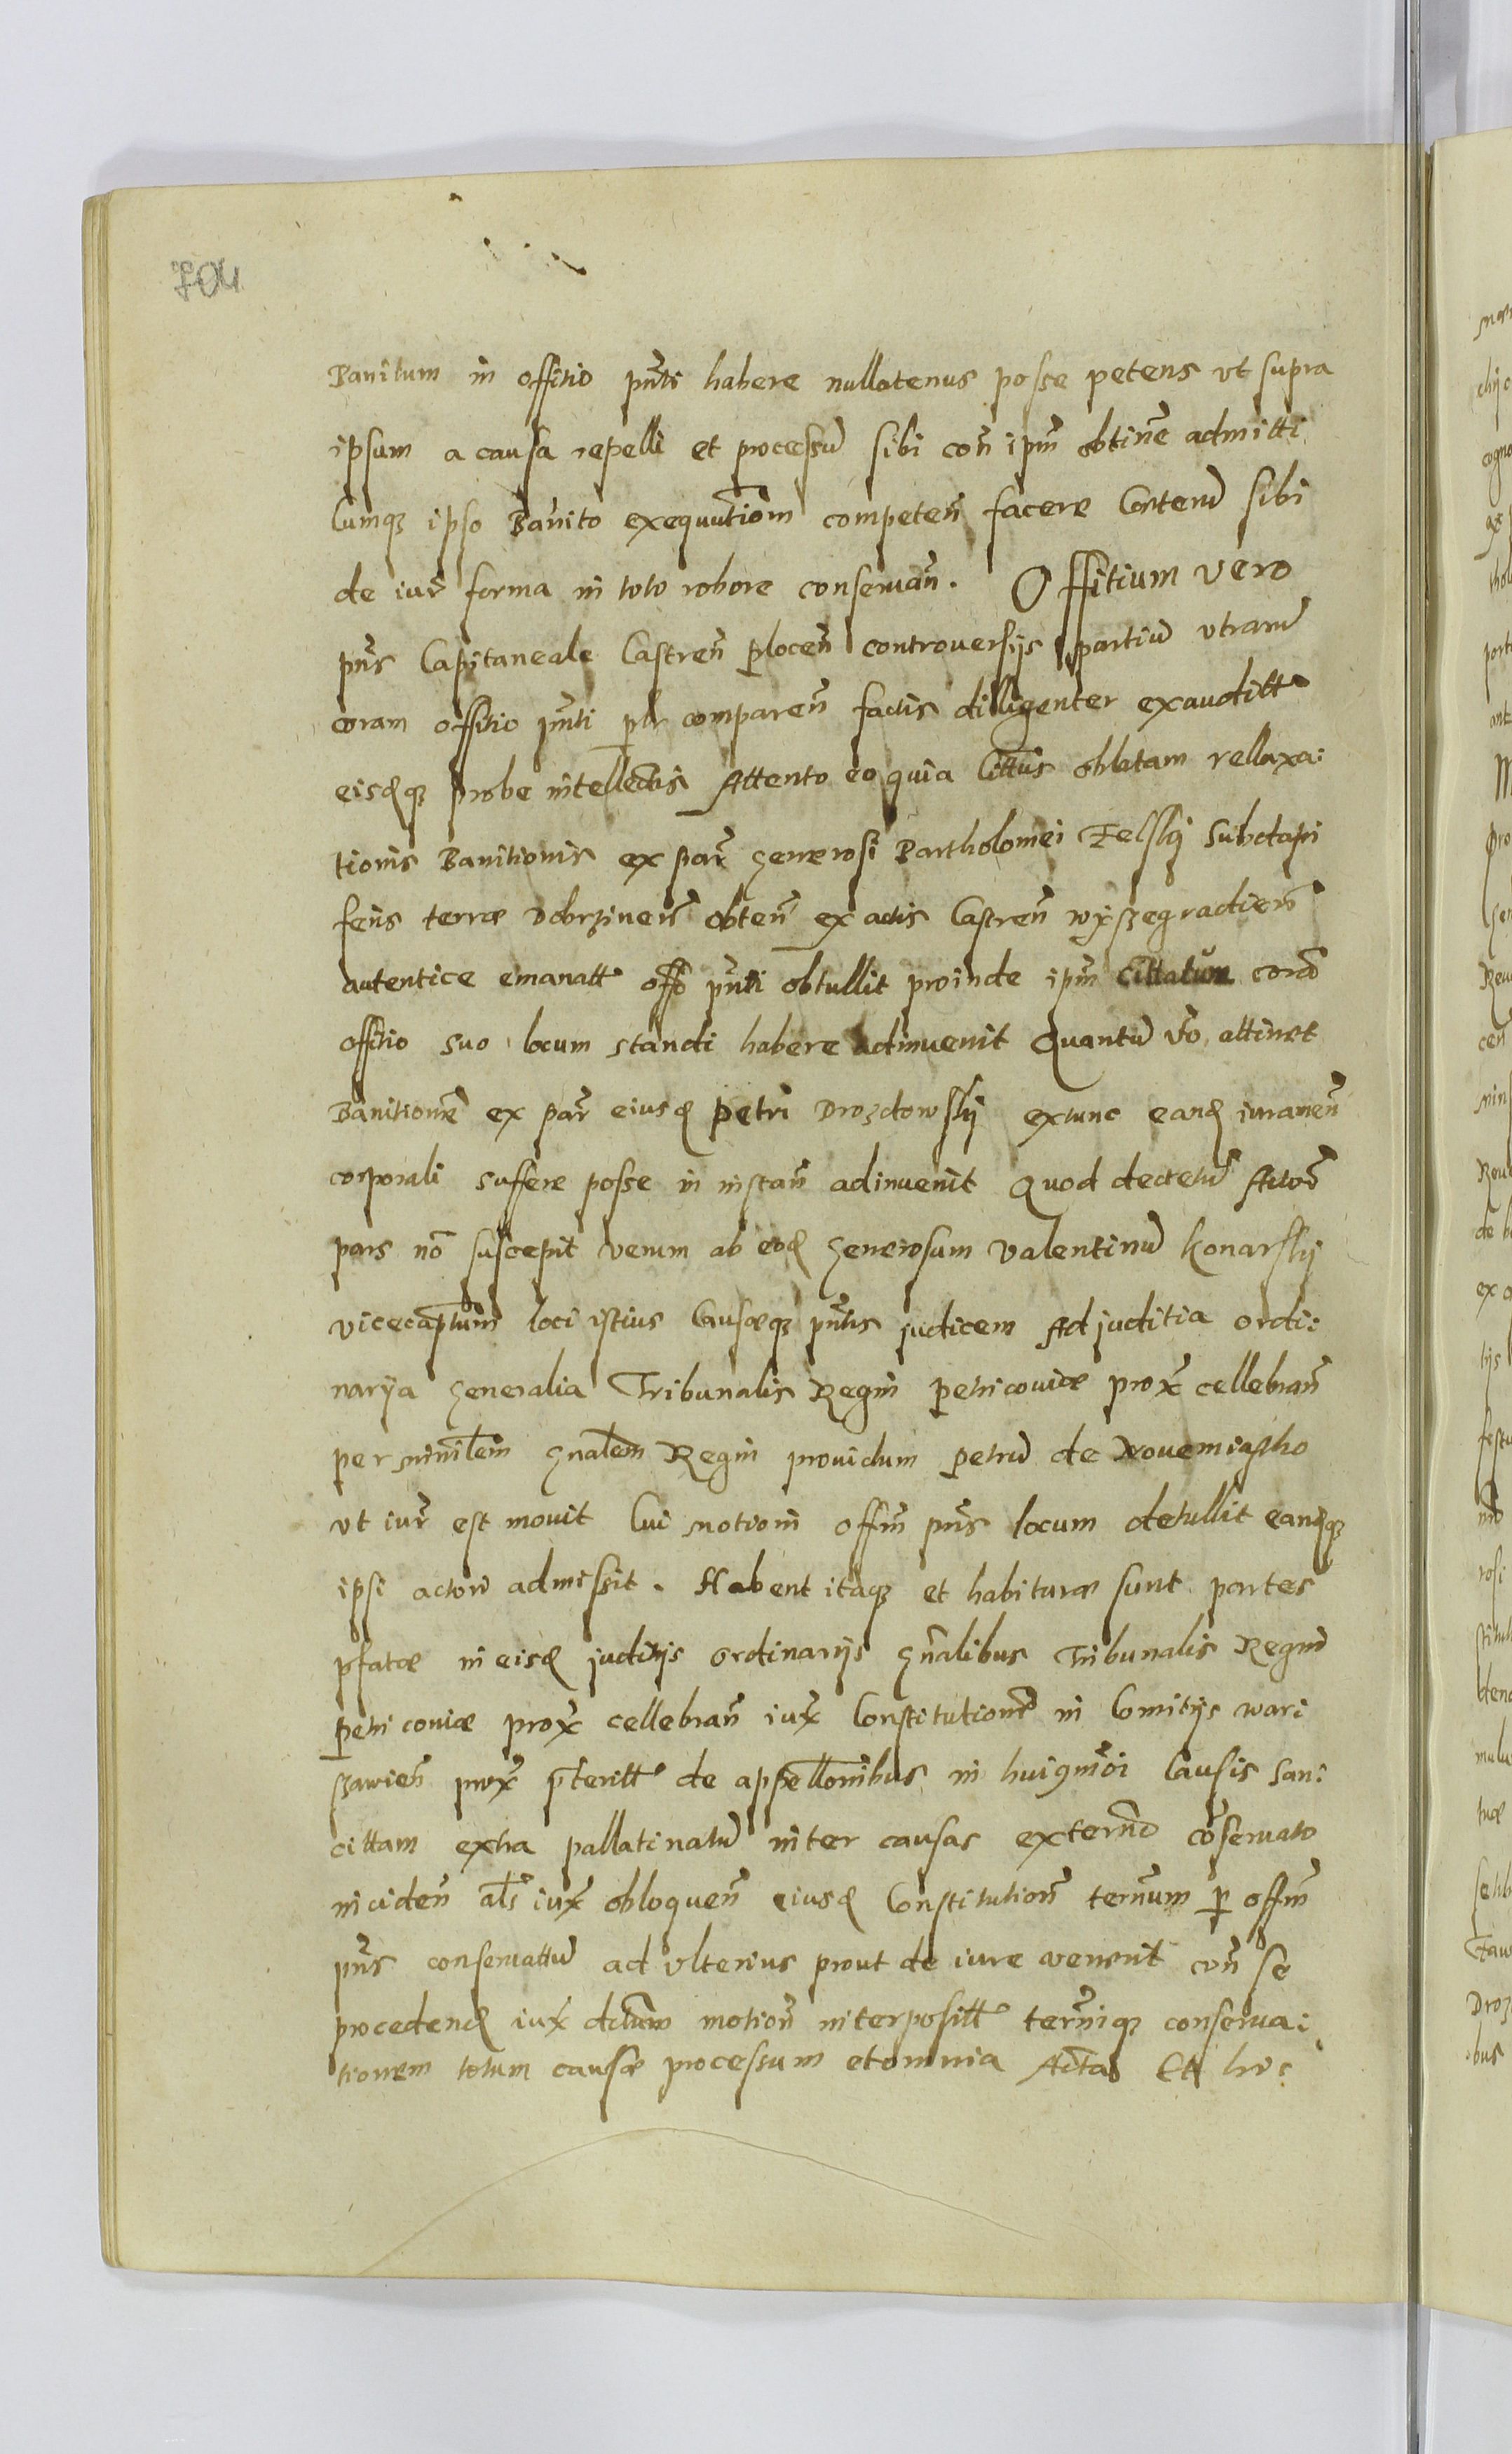 704
Banitum in offitio pn̄ti habere nullatenus posse petens vt supra
ipsum a causa repelli et processū sibi con̄ ipm̄ obtinē admitti
Cumqȝ ipso Banito exequutiōm competen̄ facere Cōtenū sibi
de iur̄ forma in toto robore conseruan̄. Offitium vero
pn̄s Capitaneale Castren̄ plocen̄ controuersijs partiū vtrarū
coram offitio pn̄ti plr̄ comparen̄ factis dilligenter exauditt
eisdqȝ probe intellectis Attento eo quia citt̄us oblatam rellaxa:
tionis Banitionis ex par̄ generosi Bartholomei Felskij subdapi
fer̄is terræ dobrzinen̄ obten̄ ex actis Castren̄ wyszegradien̄
autentice emanatt offō pn̄ti obtullit proinde ipm̄ cittatum corā
offitio suo locum standi habere adinuenit Quantū v̄o attinet
Banitionē ex par̄ eiusd petri Drozdowskij extunc eand iuramen̄
corporali suffere posse in instan̄ adinuenit Quod decretū Actor̄
pars nō suscepit verum ab eod generosum valentinū konarskij
vicecaptum̄ loci istius Causæqȝ pn̄tis judicem Ad juditia ordi:
narija generalia Tribunalis Regni petricouiæ prox̄ cellebran̄
per ministlem̄ gnalem̄ Regni prouidum petrū de Nouemiastho
vt iur̄ est mouit Cui motioni offm̄ pn̄s locum detullit eandqȝ
ipsi actori admissit. Habent itaqȝ et habituræ sunt partes
pfatæ in eisd juditijs ordinarijs gn̄alibus Tribunalis Regni
petricouiæ prox̄ cellebran̄ iux̄ Constitutionē in Comitijs wari
szawien̄ prox̄ p̄teritt de appellōnibus in huigm̄oi Causis san:
cittam extra pallatinatū inter causas externō cōseruato
inciden̄ als̄ iux̄ obloquen̄ eiusd Constitution̄ termūm p̱ offm̄
pn̄s conseruattū ad vlterius prout de iure venerit con̄ se
procedend iux̄ dictam̄ motion̄ interpositt ter̄niqȝ conserua:
tionem totum causæ processum et omnia Acta Ex his